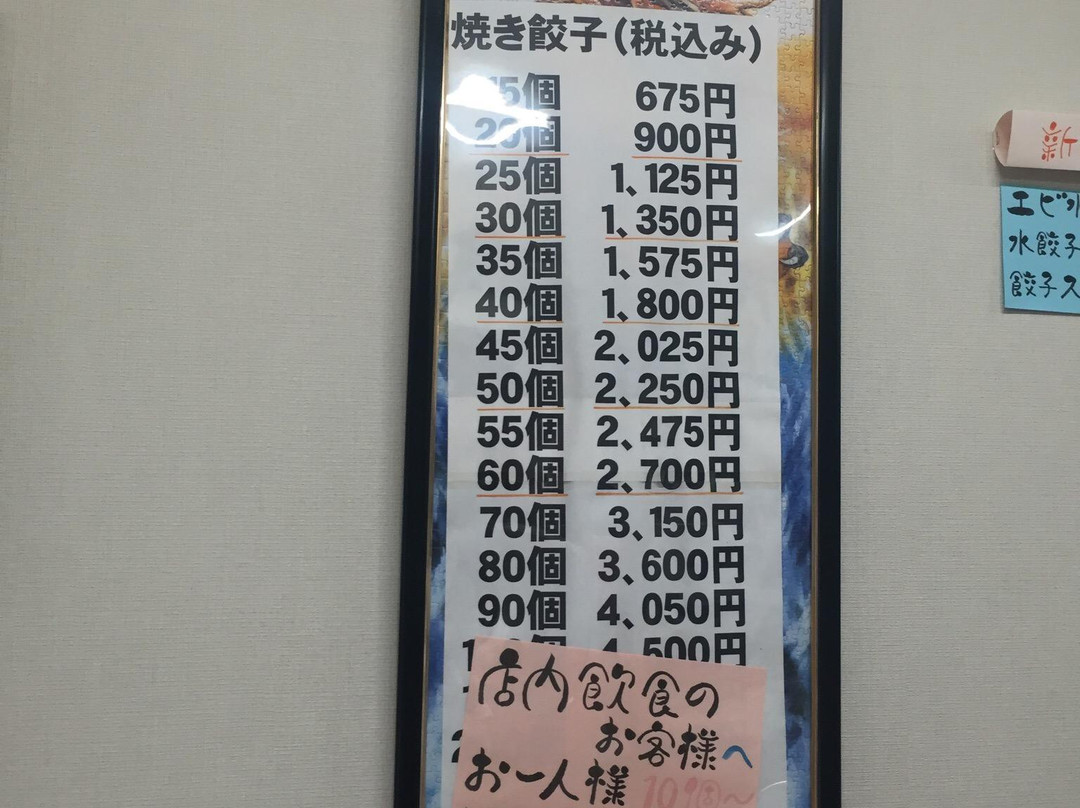 焼き餃子(税込み)
15個 675円
20個 900円
25個 1、125円
30個 1、350円
35個 1、575円
40個 1、800円
45個 2、025円
50個 2、250円
55個 2、475円
60個 2、700円
70個 3、150円
80個 3、600円
90個 4、050円
4、500円
店内飲食の
お客様へ
お一人様 10個〜
新
エビ水
水餃子
餃子ス